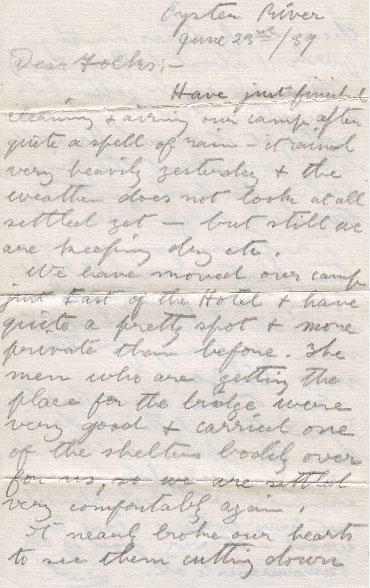 Oyster River
June 23rd/39
Dear Folks:-
Have just finished
cleaning & airing our camp after
quite a spell of rain - it rained
very heavily yesterday & the
weather does not look at all
settled yet - but still we
are keeping dry etc.
We have moved our camp
just East of the Hotel & have
quite a pretty spot & more
private than before. The
men who are getting the
place for the bridge were
very good & carried one
of the shelters bodily over
for us, so we are settled
very comfortably again.
It nearly broke our hearts
to see them cutting down